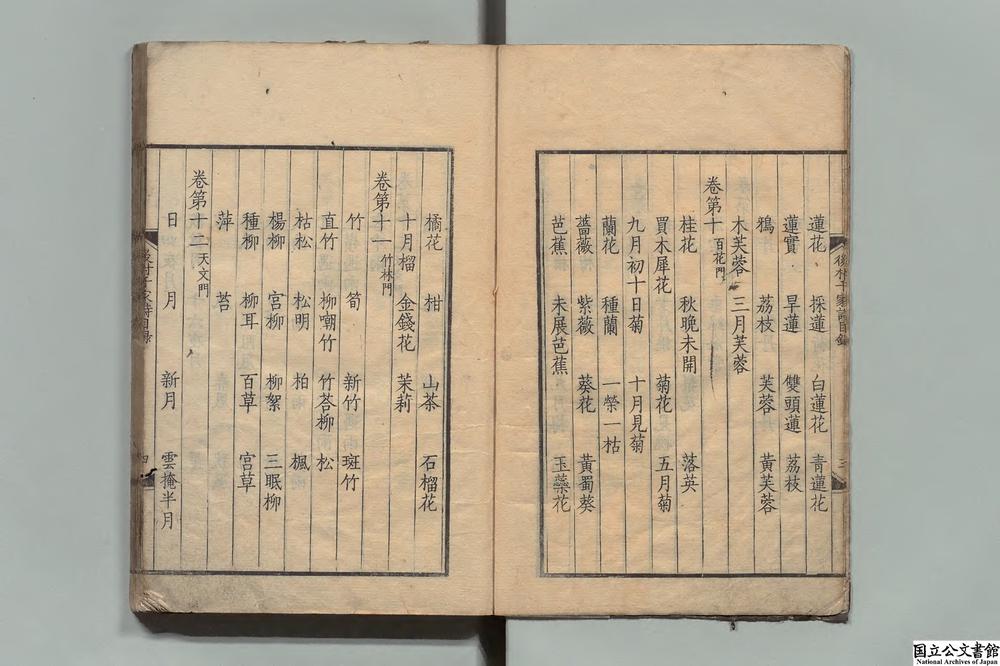 蓮花 採蓮 白蓮花 青蓮花
蓮實 旱蓮 雙頭蓮 荔枝
鴉 荔枝 芙蓉 黃芙蓉
木芙蓉 三月芙蓉
卷第十 百花門
桂花 秋晚未開 落英
買木犀花 菊花 五月菊
九月初十日菊 十月見菊
蘭花 種蘭 一榮一枯
薔薇 紫薇 葵花 黃蜀葵
芭蕉 未展芭蕉 玉蘂花
後村千家詩目錄
三
橘花 柑 山茶 石榴花
十月榴 金錢花 茉莉
卷第十一 竹林門
竹 筍 新竹 斑竹
直竹 柳嘲竹 竹荅柳 松
枯松 松明 柏 楓
楊柳 宮柳 柳絮 三眠柳
種柳 柳耳 百草 宮草
萍 苔
卷第十二 天文門
日 月 新月 雲掩半月
四
国立公文書館
National Archives of Japan